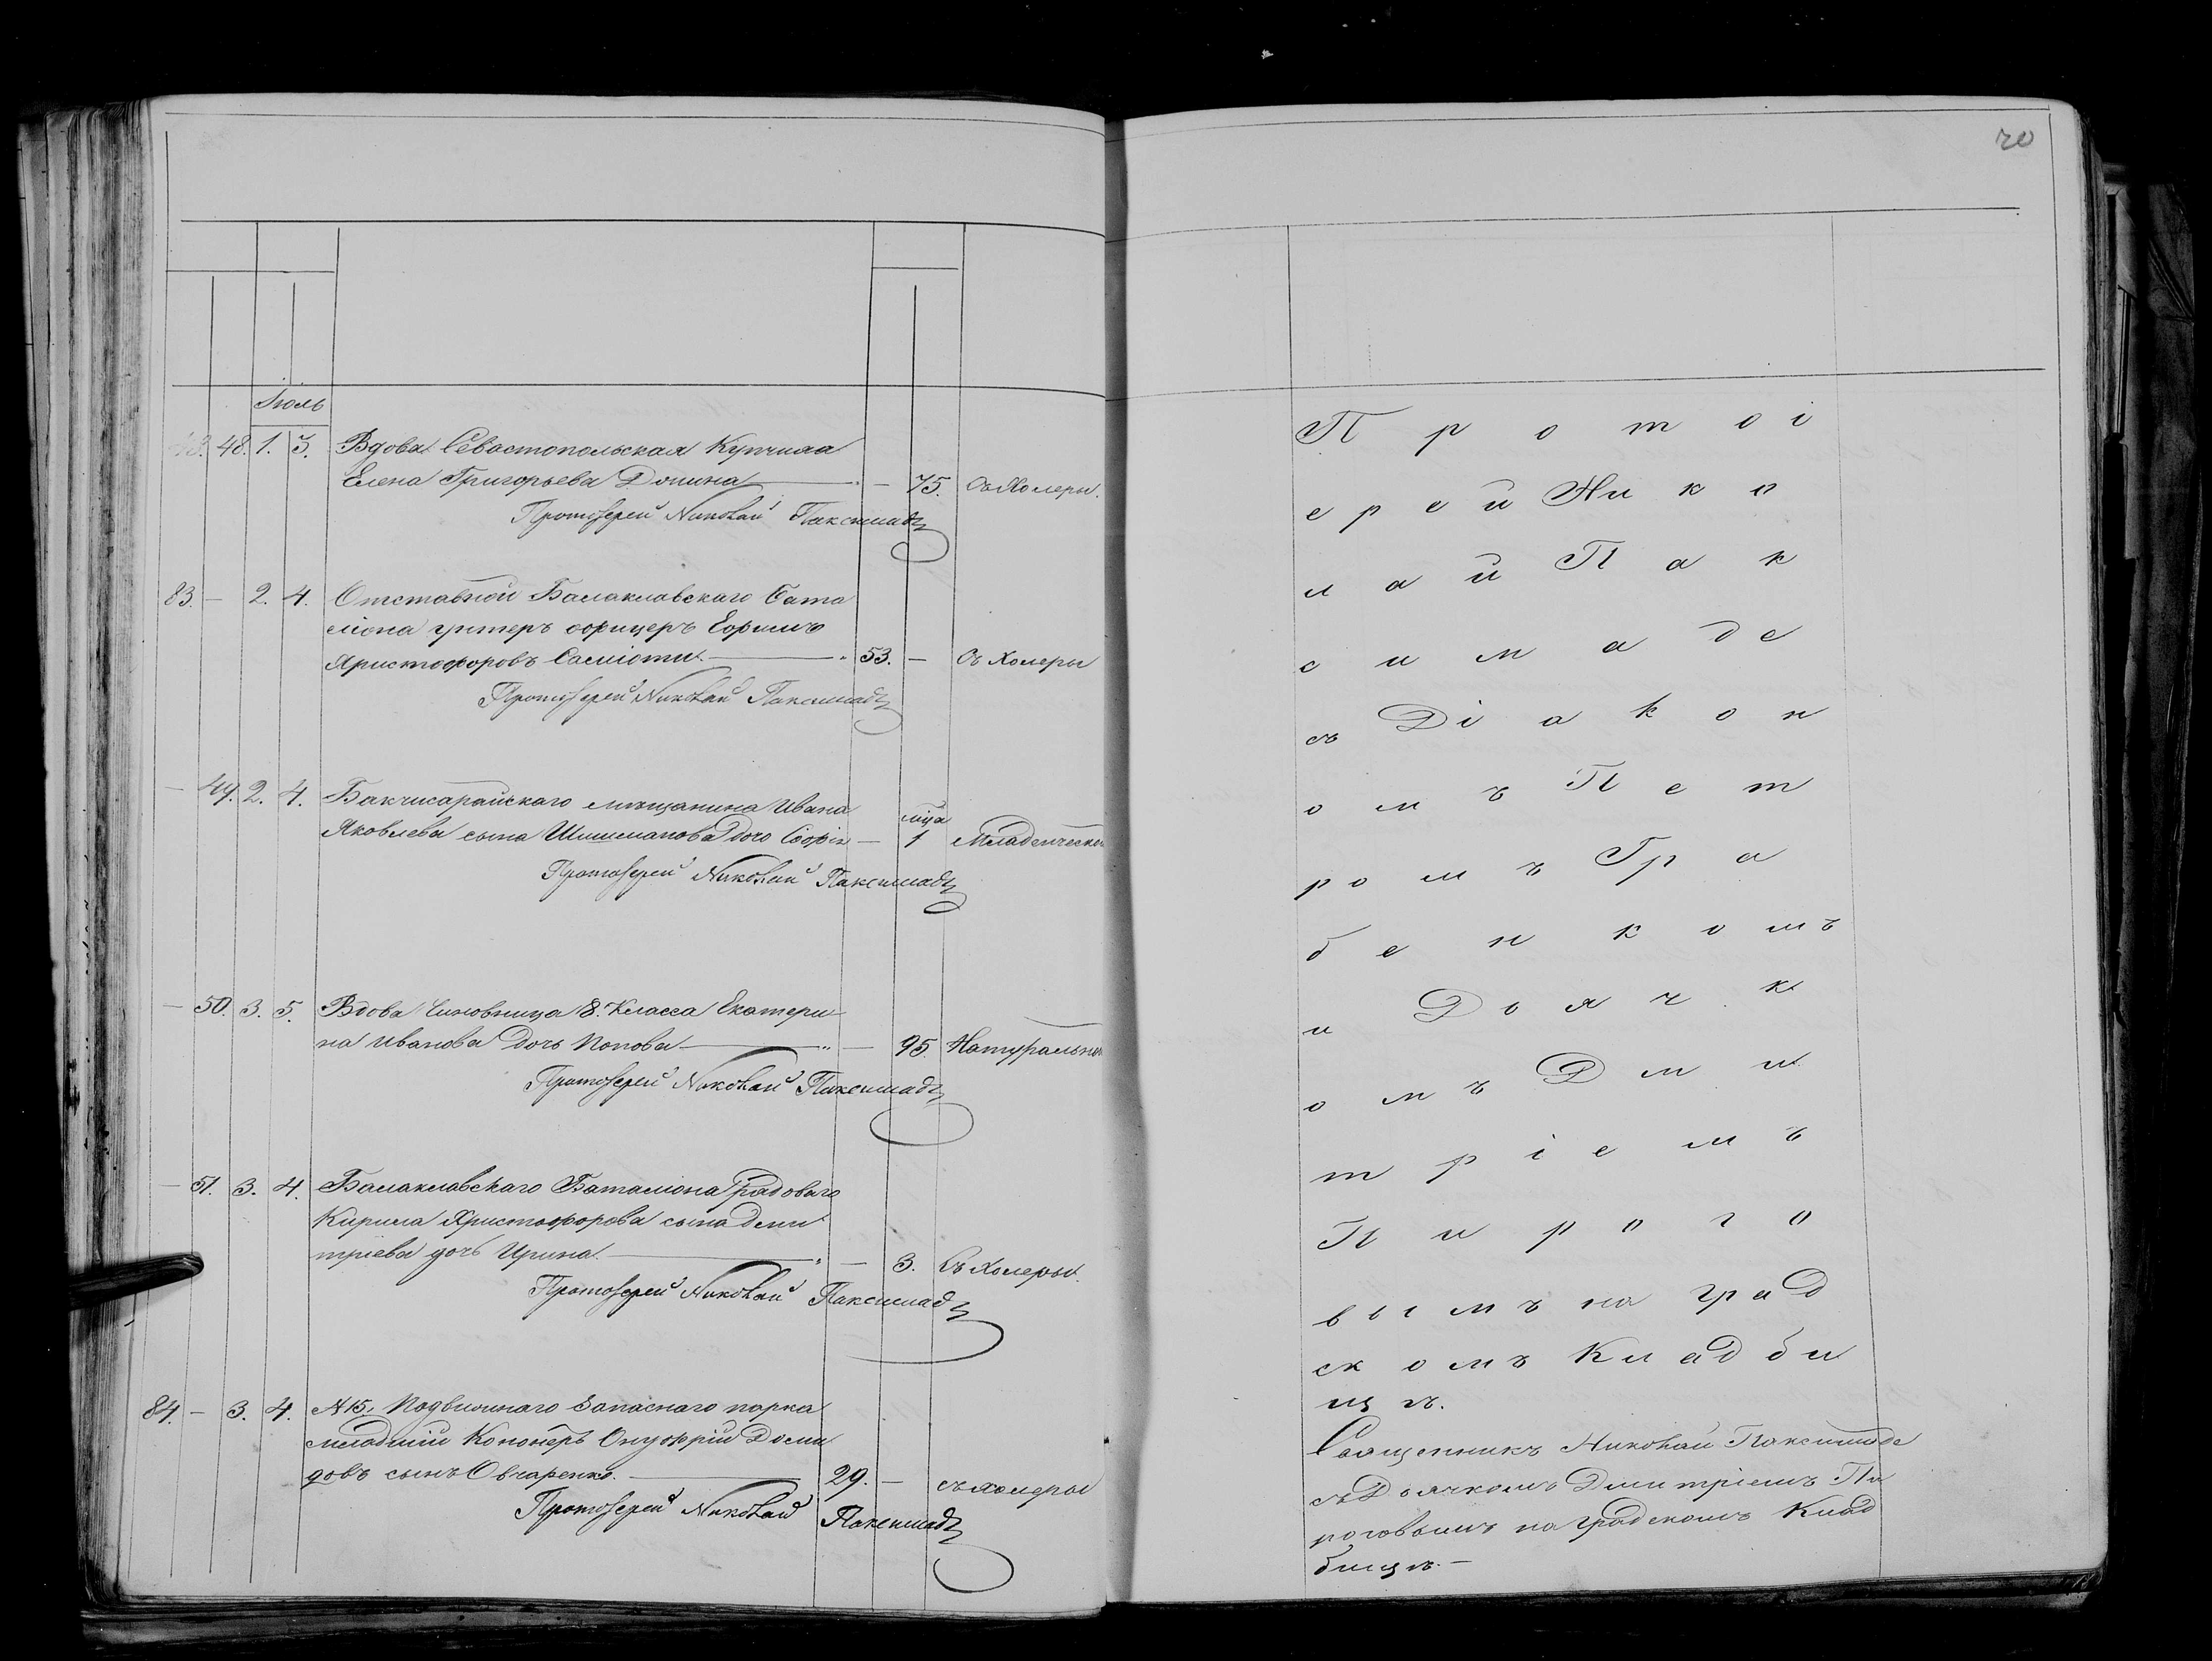 Іюль
48. 1. 3. Вдова Севастопольская Купчиха
Елена Григорьева Допина — 75. Съ Холеры.
Протоіерей Николай Паксимадѣ
83. — 2. 4. Отставной Балаклавскаго Бата
ліона унтеръ офицеръ Ефимъ
Христофоровъ — 53. — Съ Холеры
Протоіерей Николай Паксимадѣ
— 49. 2. 4. Бакчисарайскаго мѣщанина Ивана мца
Яковлева сына Шишманова дочь Софія — 1 Младенческой
Протоіерей Николай Паксимадѣ
— 50. 3. 5. Вдова Чиновница 8. Класса Екатери
на Иванова дочь Попова — 95. Натуральной
Протоіерей Николай Паксимадѣ
— 51. 3. 4. Балаклавскаго Баталіона Рядоваго
Кирила Христофорова сына Дими
тріева дочь Ирина. — 3. Съ Холеры.
Протоіерей Николай Паксимадѣ
84. — 3. 4. №15, Подвижнаго Запаснаго парка
младшій Кононеръ Онуфрій Деми
довъ сынъ Овчаренко. 29. — съ холеры
Протоіерей Николай Паксимадѣ
70
Протоі
ерей Нико
лай Пак
симаде
съ Діакон
омъ Пет
ромъ Гра
бенкомъ
и Дьячк
омъ Дми
тріемъ
Пирого
вымъ на град
скомъ Кладби
щѣ.
Священникъ Николай Паксимаде
съ Дьячкомъ Димитріемъ Пи
роговымъ на Градскомъ Клад
бищѣ. —